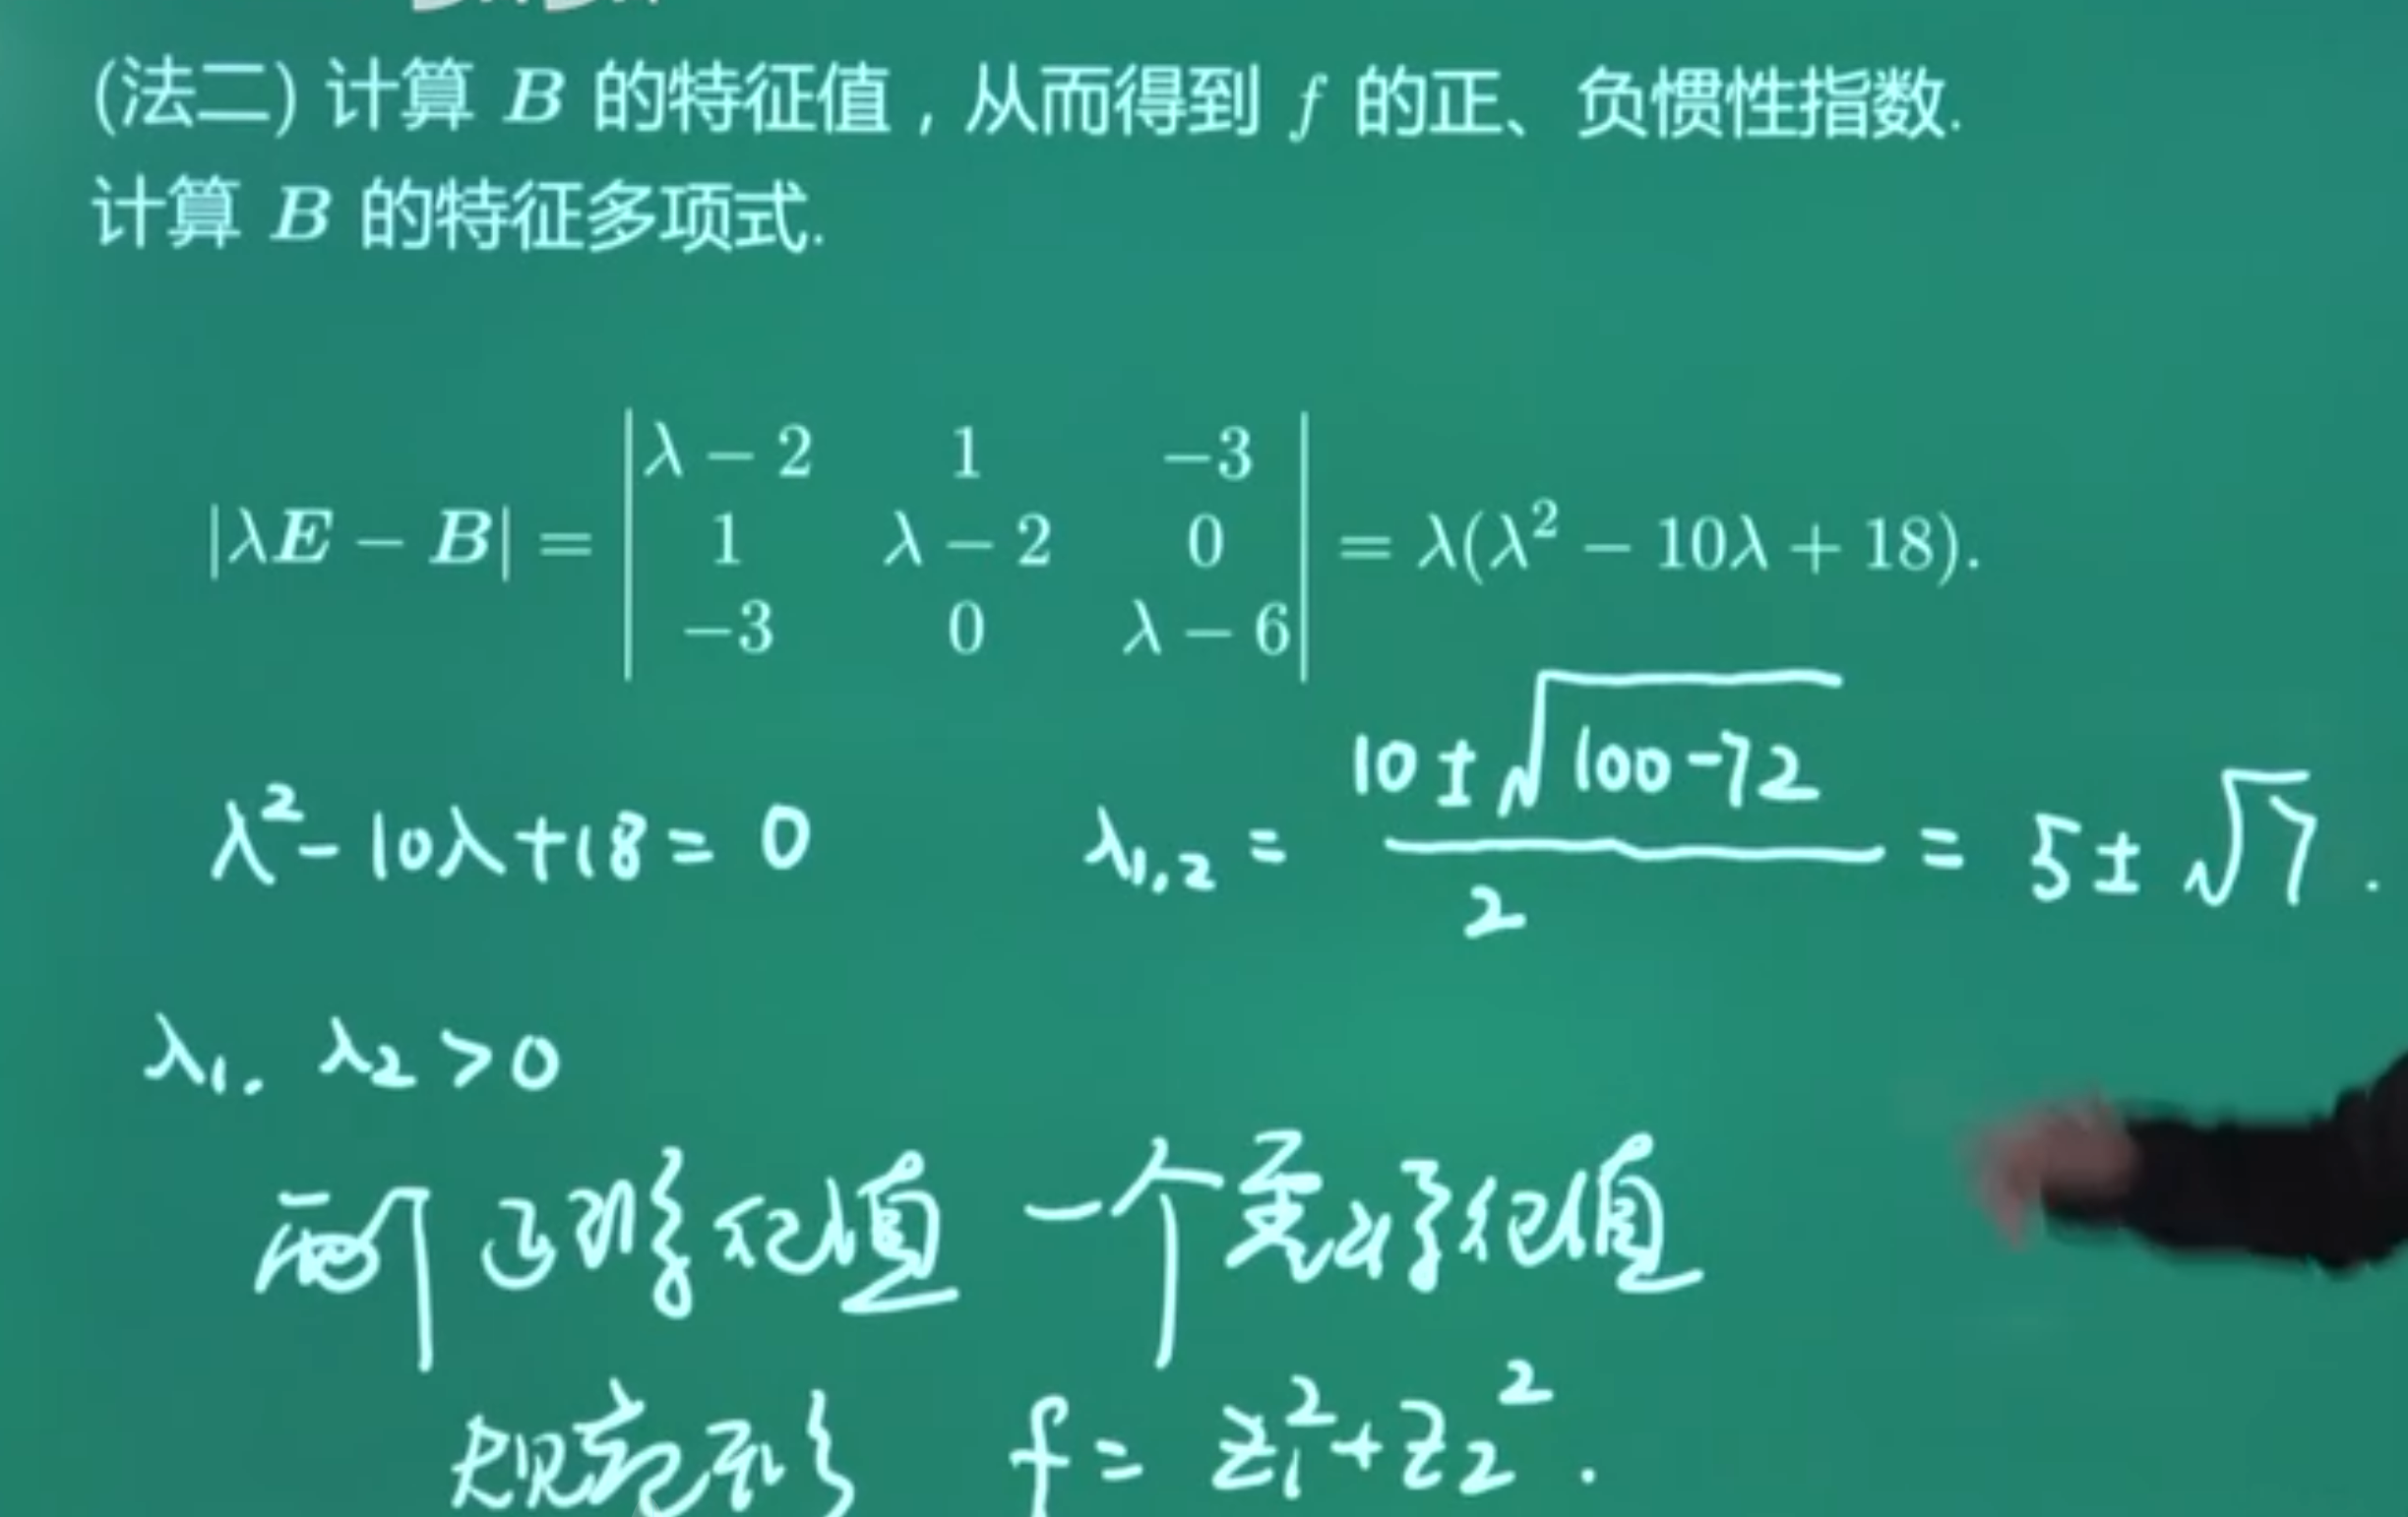 (法二) 计算 B 的特征值，从而得到 f 的正、负惯性指数.
计算 B 的特征多项式.
|λE − B| = | λ − 2 1 −3 |
| 1 λ − 2 0 | = λ(λ² − 10λ + 18).
| −3 0 λ − 6 |
λ² − 10λ + 18 = 0 λ₁,₂ = (10 ± √(100 − 72)) / 2 = 5 ± √7.
λ₁. λ₂ > 0
两个正特征值 一个零特征值
规范形 f = z₁² + z₂².